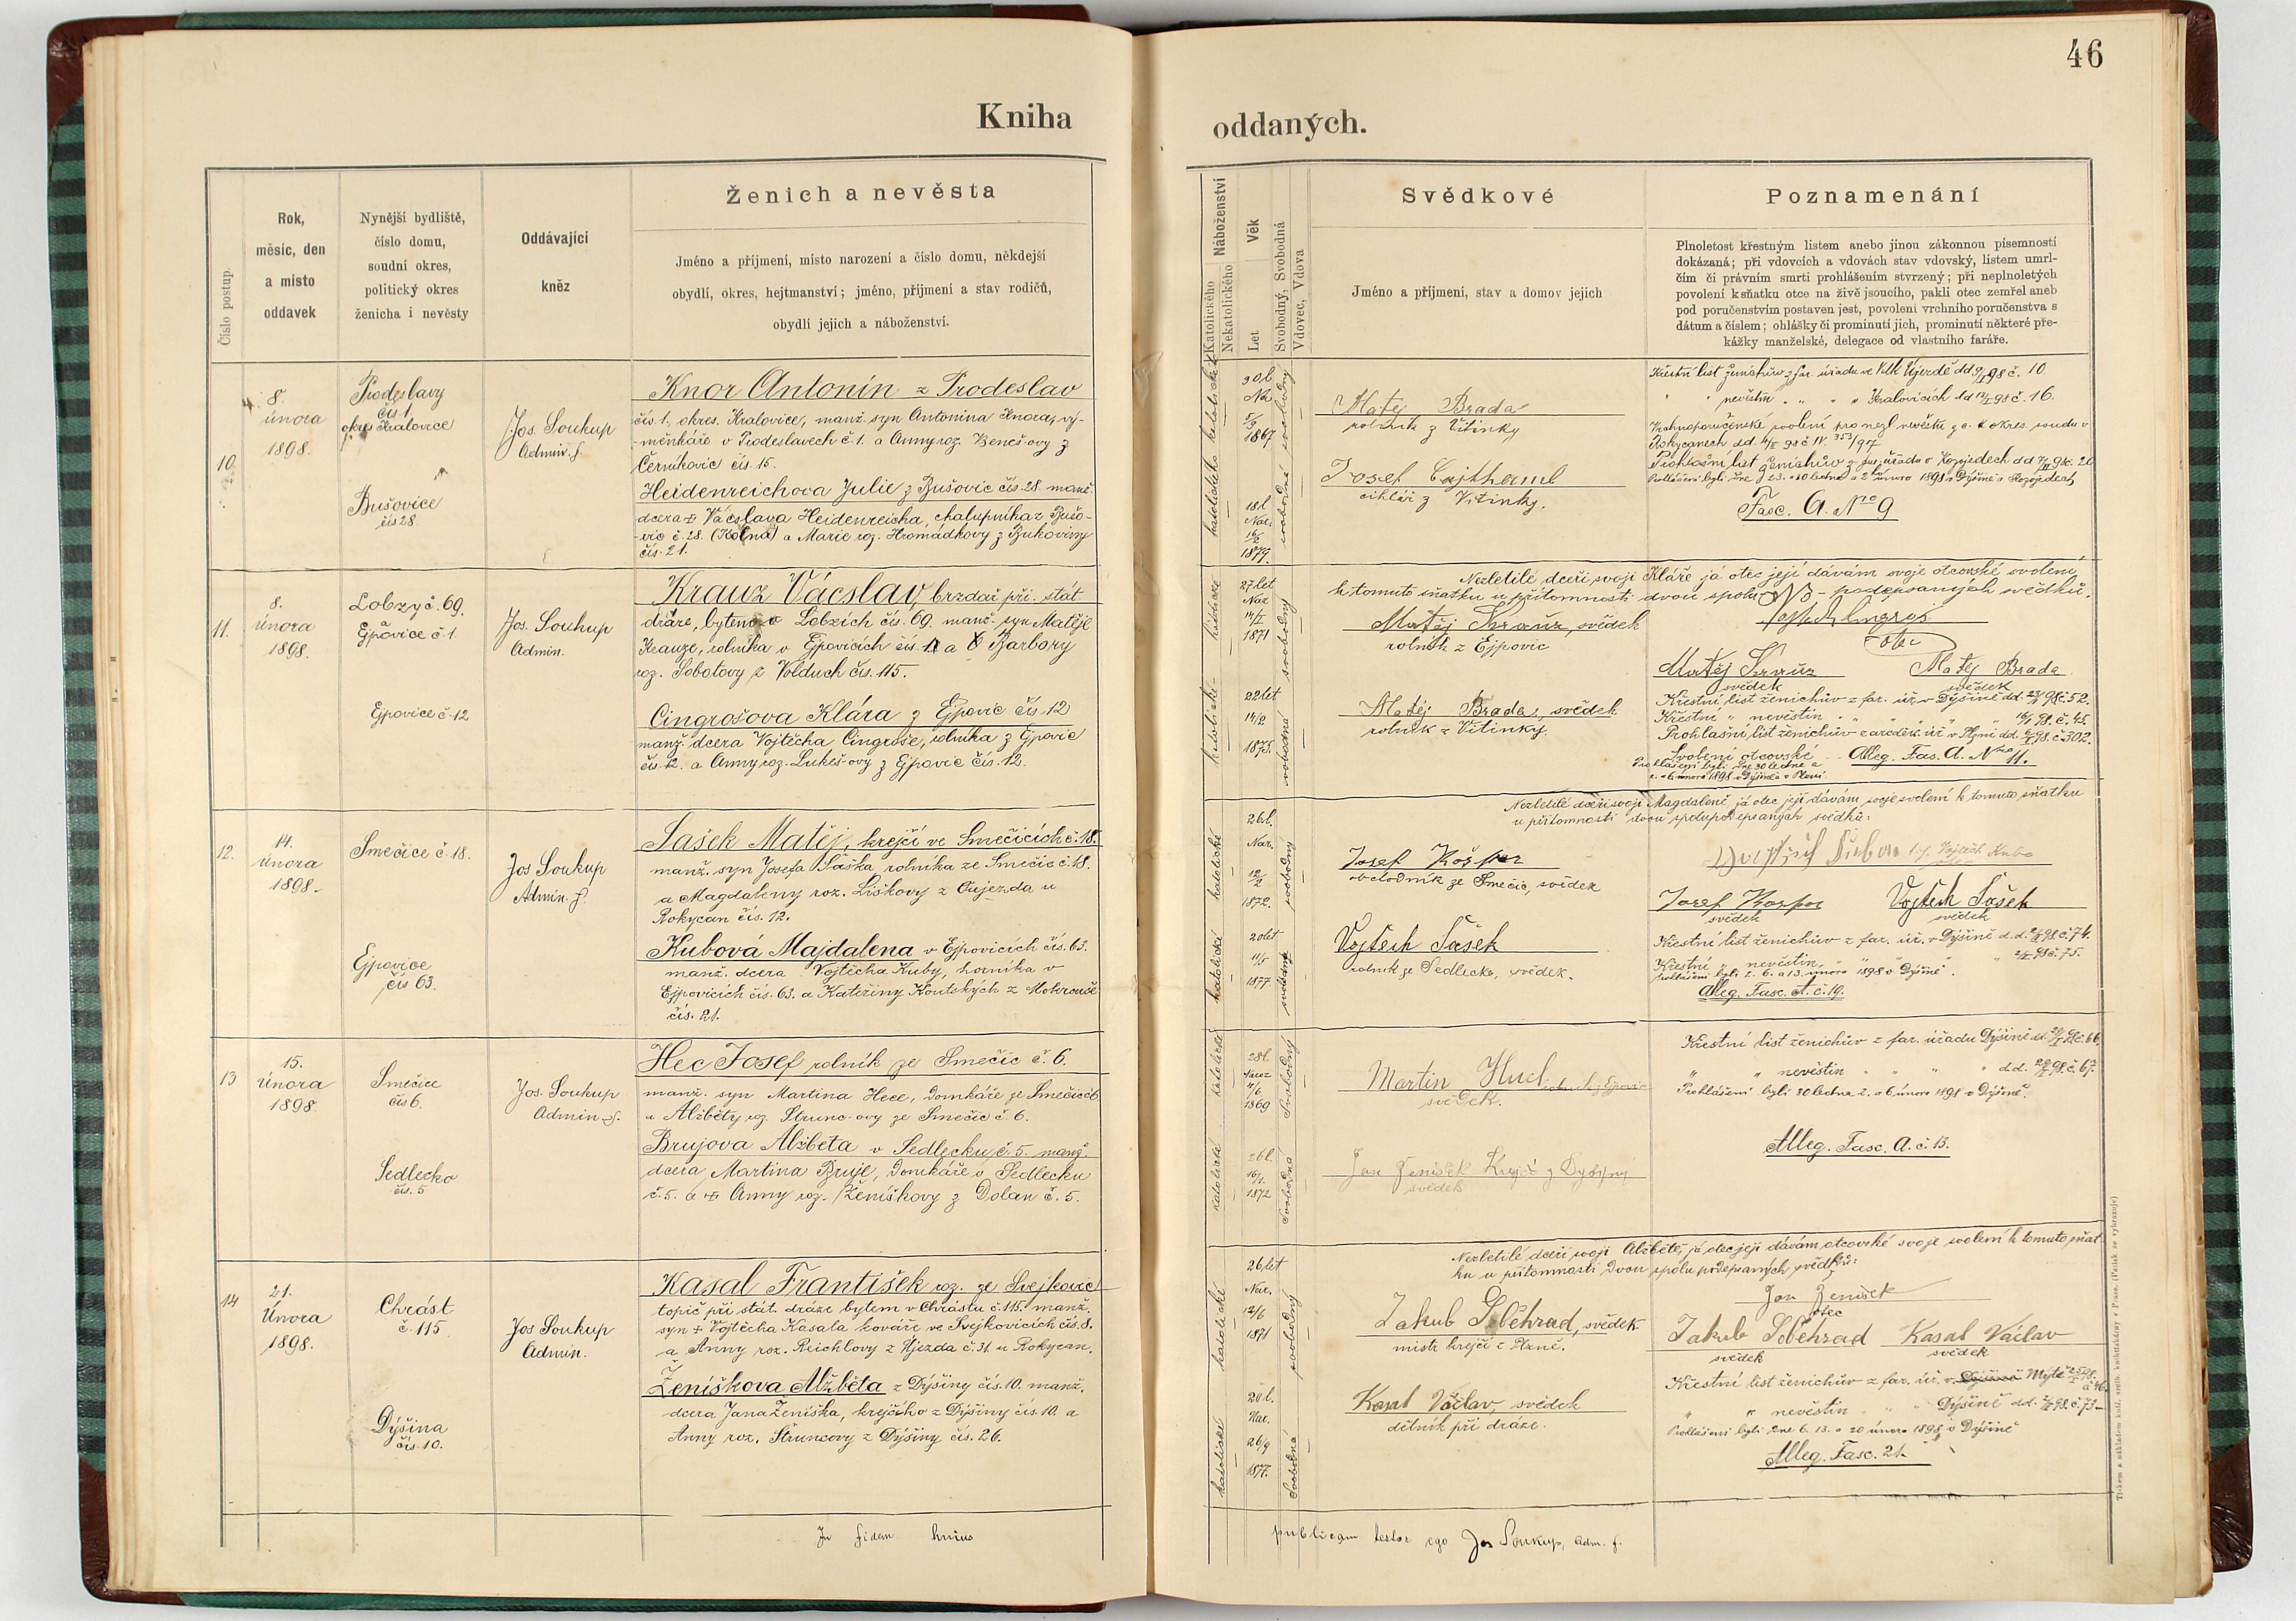 46
Kniha
oddaných.
Číslo postup.
Rok,
měsíc, den
a místo
oddavek
Nynější bydliště,
číslo domu,
soudní okres,
politický okres
ženicha i nevěsty
Oddávající
kněz
Ženich a nevěsta
Jméno a příjmení, místo narození a číslo domu, někdejší
obydlí, okres, hejtmanství; jméno, příjmení a stav rodičů,
obydlí jejich a náboženství.
Náboženství
Katolického
Nekatolického
Věk
Let
Svobodný, Svobodná
Vdovec, Vdova
Svědkové
Jméno a příjmení, stav a domov jejich
Poznamenání
Plnoletost křestným listem anebo jinou zákonnou písemností
dokázaná; při vdovcích a vdovách stav vdovský, listem umrl-
čím či právním smrti prohlášením stvrzený; při neplnoletých
povolení k sňatku otce na živě jsoucího, pakli otec zemřel aneb
pod poručenstvím postaven jest, povolení vrchního poručenstva s
dátum a číslem; ohlášky či prominutí jich, prominutí některé pře-
kážky manželské, delegace od vlastního faráře.
10.
8.
února
1898.
Prodeslavy
čís. 1.
okres Kralovice
Bušovice
čís 28
Jos. Soukup
Admin. f.
Knor Antonín z Prodeslav
čís. 1., okres. Kralovice, manž. syn Antonína Knora, vý-
-měnkáře v Prodeslavech č. 1. a Anny roz. Beneš-ovy z
Černíkovic čís. 15.
Heidenreichova Julie z Bušovic čís. 28. manž.
dcera † Vácslava Heidenreicha, chalupníka z Bušo-
-vic č. 28. a Marie roz. Hromádkovy z Bukoviny
čís. 21.
katolické
30 l.
Nar.
1867
svobodný
18 l.
Nar.
1879.
svobodná
Matěj Brada
rolník z Vitinky
Josef Cajthaml
cihlář z Vitinky.
Křestní list ženichův z far. úřadu ve 98 č. 10.
" " nevěstin " " " v Kralovicích 98 č. 16.
Fasc. A. No 9
11.
8.
února
1898.
Lobzy č. 69.
a
Ejpovice č. 1.
Ejpovice č. 12
Jos. Soukup
Admin.
Krauz Vácslav, brzdař při. stát
dráze, bytem v Lobzích čís. 69. manž. syn Matěje
Krauze, rolníka v Ejpovicích čís. 1. a Barbory
roz. Sobotovy z Volduch čís. 115.
Cingrošova Klára z Ejpovic čís. 12
manž. dcera Vojtěcha Cingroše, rolníka z Ejpovic
čís. 12. a Anny roz. Lukeš-ovy z Ejpovic čís. 12.
katolické
27 let
Nar.
1871
svobodný
katolické
22 let
14/2
1875.
svobodná
Nezletilé dceři svojí Kláře já otec její dávám svoje otcovské svolení
k tomuto sňatku u přítomnosti dvou spolu - podepsaných svědků.
Matěj Krauz, svědek
rolník z Ejpovic
Matěj Brada, svědek
rolník z Vitinky.
otec
Matěj Krauz
svědek
Matěj Brada
svědek
Křestní list ženichův z far. úř. v Dýšině dd. 98 č. 52.
Křestní " nevěstin " " " " 98. č. 45.
Prohlašní list ženichův z arciděk. úř. v Plzni dd. 98. č. 302.
Svolení otcovské Alleg. Fas. A. No 11.
12.
14.
února
1898.
Smečice č. 18.
Ejpovice
čís 63.
Jos Soukup
Admin. f.
Sašek Matěj, krejčí ve Smečicích č. 18.
manž. syn Josefa Saška, rolníka ze Smečic č. 18.
a Magdaleny roz. Liškovy z Oujezda u
Rokycan čís. 12.
Kubová Majdalena v Ejpovicích čís. 63.
manž. dcera Vojtěcha Kuby, horníka v
Ejpovicích čís. 63. a Kateřiny Koutských z Mokrouš
čís. 21.
katolické
26 l.
Nar.
12/2
1872.
svobodný
katolické
20 let
11/5
1877
svobodná
Nezletilé dceři svojí Magdaleně, já otec její dávám svoje svolení k tomuto sňatku
u přítomnosti dvou spolupodepsaných svědků:
Josef
obchodník ze Smečic, svědek
Vojtěch Sašek
rolník ze Sedlecka, svědek.
Vojtěch Kuba
svědek
Vojtěch Sašek
svědek
Křestní list ženichův z far. úř. v Dýšině d. d. 98 č. 74.
Křestní " nevěstin " " " " 98 č. 75.
Prohlášeni byli 2. 6. a 13. února 1898 v Dýšině.
Alleg. Fasc. A. č. 19.
13
15.
Února
1898
Smečice
čís 6.
Sedlecko
čís. 5
Jos. Soukup
Admin. f.
Hec Josef rolník ze Smečic č. 6.
manž. syn Martina Hece, domkáře ze Smečic č 6
a Alžběty roz. Strunc-ovy ze Smečic č. 6.
Brujova Alžběta v Sedlecku, č. 5. manž.
dcera Martina Bruje, domkáře v Sedlecku
č. 5. a † Anny roz. Ženíškovy z Dolan č. 5.
katolické
28 l.
1869
Svobodný
katolická
26 l.
16/1.
1872
Svobodná
Martin
svědek.
Jan Ženíšek Krejčí z Dýšiny
svědek
Křestní list ženichův z far. úřadu Dýšině 98 č. 66
" " nevěstin " " " d. d. 98 č. 67.
Prohlášeni byli 30 ledna 2. a 6 února 1898 v Dýšině.
Alleg. Fasc. A. č. 13.
14
21.
Února
1898.
Chrást
č. 115
Dýšina
čís. 10.
Jos Soukup
Admin.
Kasal František roz. ze Svejkovic
topič při stát. dráze bytem v Chrástu č. 115. manž.
syn † Vojtěcha Kasala kováře ve Svejkovicích čís. 8.
a Anny roz. Reichlovy z Újezda č. 31 u Rokycan.
Ženíškova Alžběta z Dýšiny čís. 10. manž.
dcera Jana Ženíška, krejčího z Dýšiny čís. 10. a
Anny roz. Struncovy z Dýšiny čís. 26.
katolické
26 let
Nar.
12/6
1871
svobodný
katolické
20 l.
Nar.
26/9
1877.
Svobodná
Nezletilé dceři svojí Alžbětě, já otec její dávám otcovské svoje svolení k tomuto sňat-
ku u přítomnosti dvou spolu podepsaných svědků:
Jan Ženíšek
otec
Jakub Soběhrad, svědek
mistr krejčí z Plzně.
Kasal Václav svědek
dělník při dráze.
Jakub Soběhrad
svědek
Kasal Václav
svědek
Křestní list ženichův z far. úř. v Dýšině Mýtě 98.
č 46.
" " nevěstin " " Dýšině dd. 98. č. 73
Prohlášeni byli dne 6. 13. a 20 února 1898 v Dýšině
Alleg. Fasc. 21.
In fidem huius
publicam testor ego Jos Soukup, adm. f.